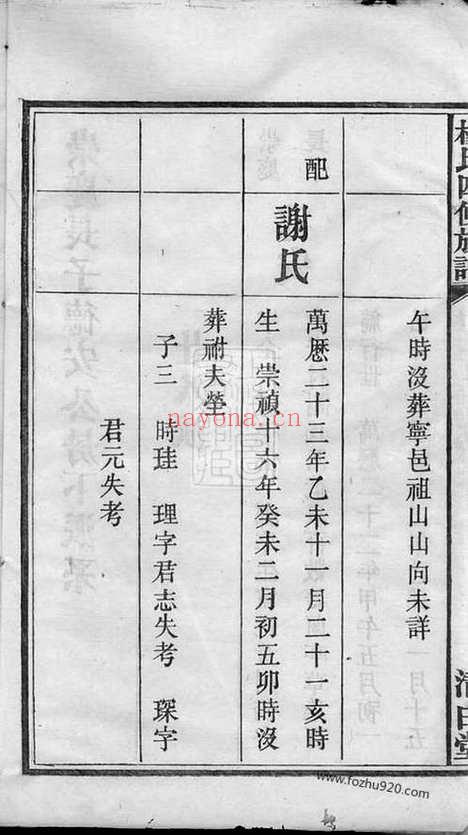 氏四修族譜
午時沒葬寧邑祖山山向未詳
配
謝氏
萬厯二十三年乙未十一月二十一亥時
生　崇禎十六年癸未二月初五卯時沒
葬祔夫塋
子三　時珪　理字君志失考　琛字
君元失考
nayona.cn
www.fozhu920.com